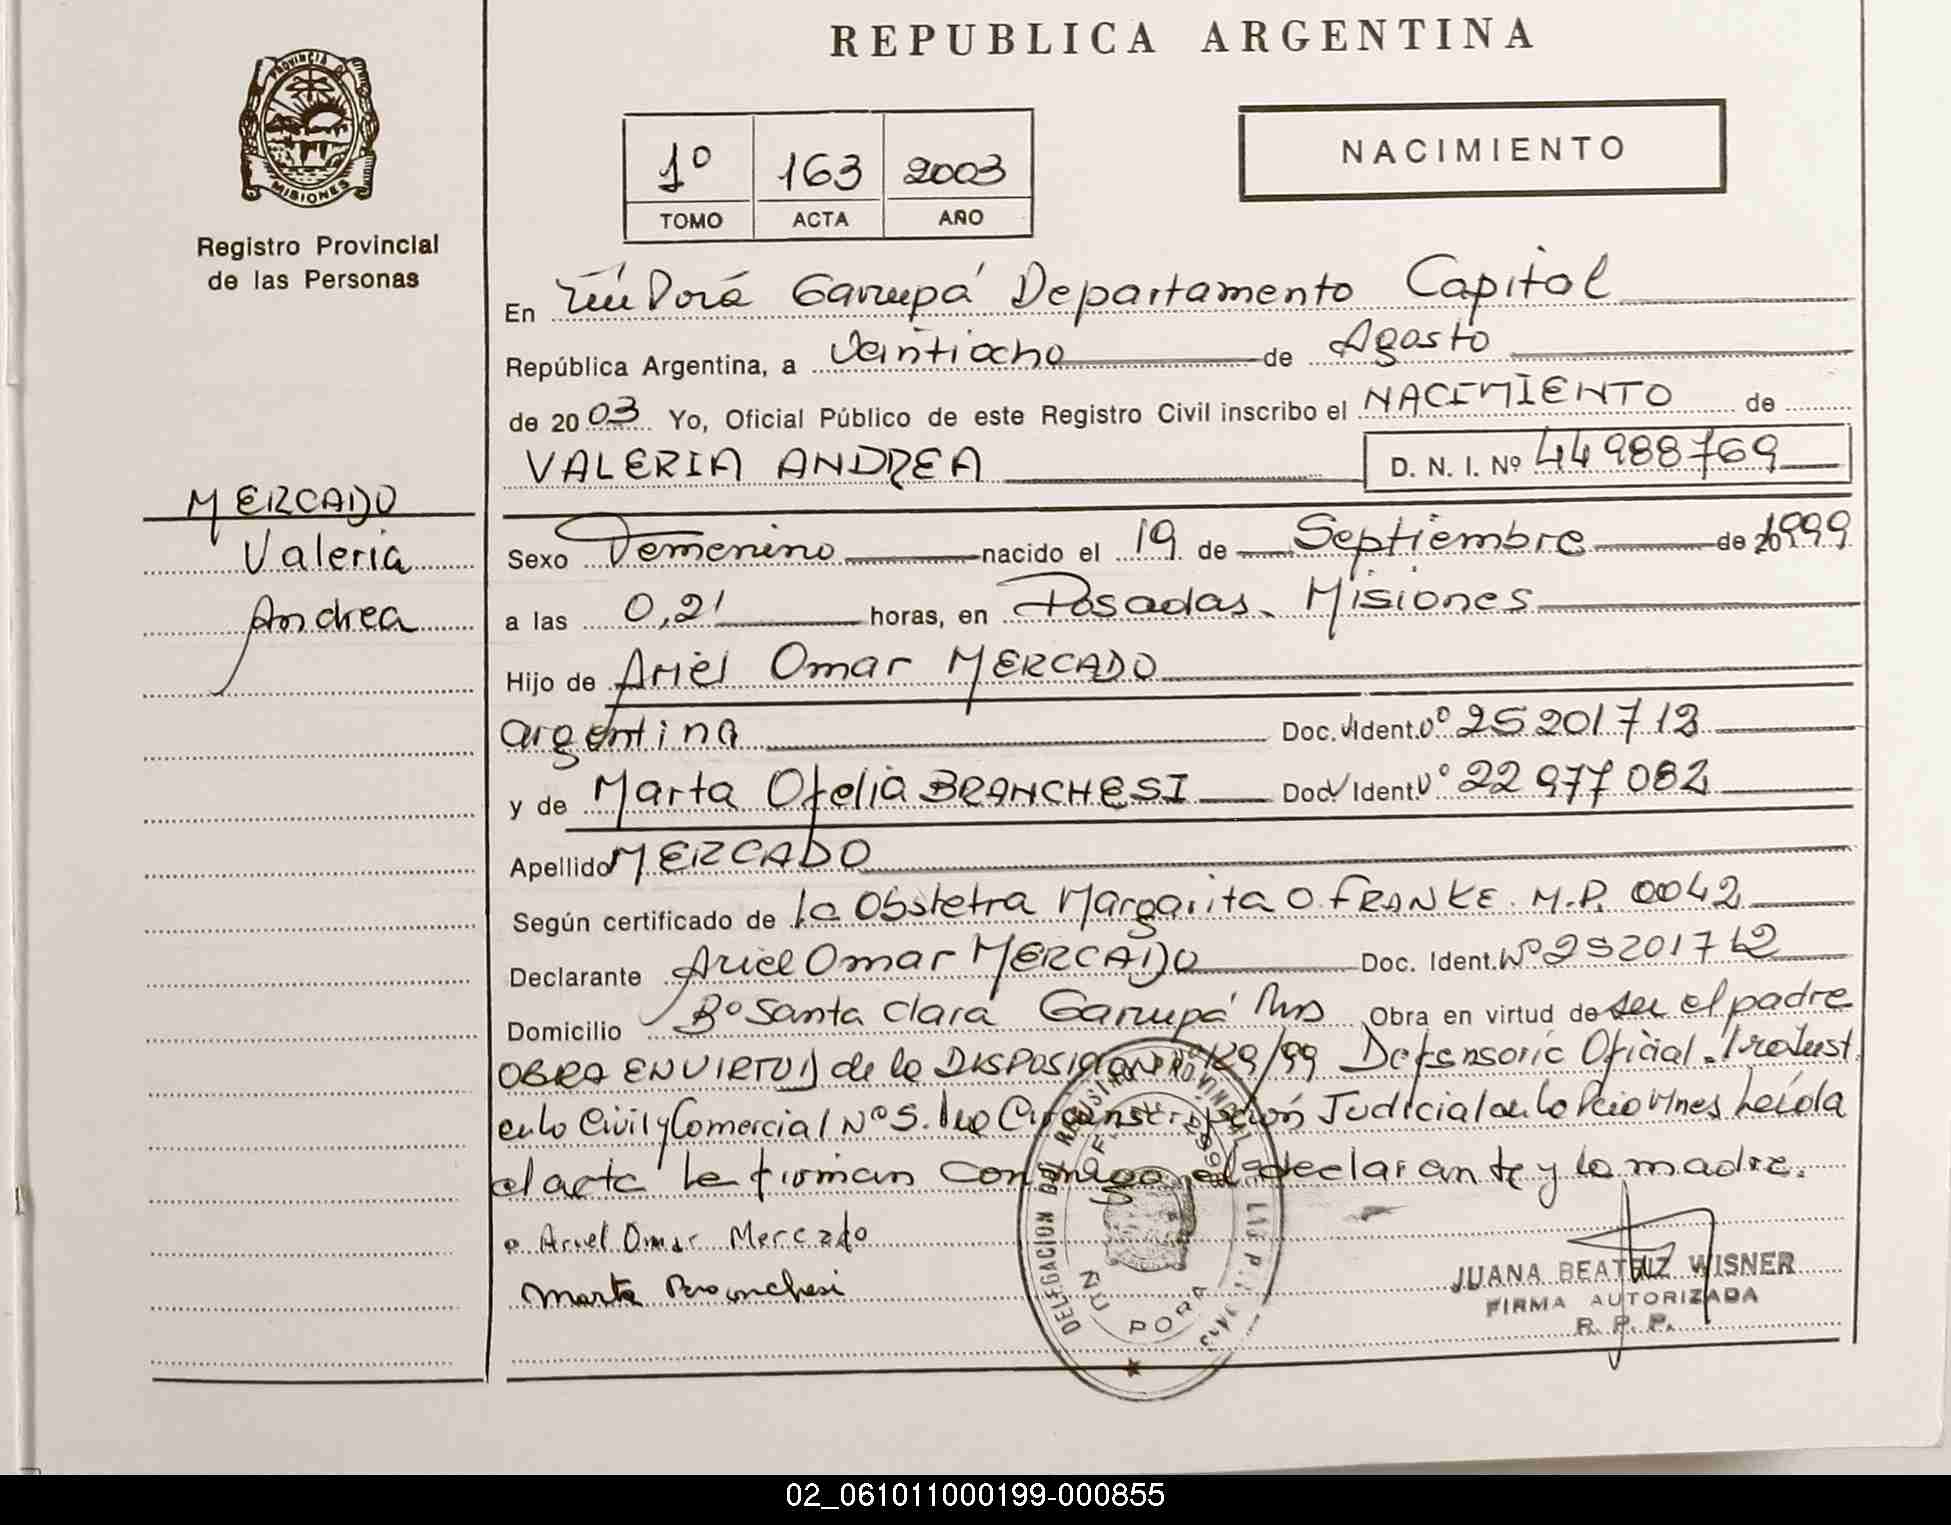 REPUBLICA ARGENTINA
PROVINCIA DE
MISIONES
Registro Provincial
de las Personas
1º 163 2003
TOMO ACTA AÑO
NACIMIENTO
En Ñú Porá Garupá Departamento Capital
República Argentina, a Veintiocho de Agosto
de 2003 Yo, Oficial Público de este Registro Civil inscribo el NACIMIENTO de
VALERIA ANDREA D. N. I. Nº 44988769
MERCADO
Valeria
Andrea
Sexo Femenino nacido el 19 de Septiembre de 1999
a las 0,21 horas, en Posadas Misiones
Hijo de Ariel Omar MERCADO
argentina Doc. Ident. Nº 25201712
y de Marta Ofelia BRANCHESI Doc. Ident. Nº 22977082
Apellido MERCADO
Según certificado de la Obstetra Margarita O. FRANKE. M.P. 0042
Declarante Ariel Omar MERCADO Doc. Ident. Nº 25201712
Domicilio Bº Santa Clara Garupá Mnes Obra en virtud de ser el padre
OBRA EN VIRTUD de la DISPOSICION Nº 129/99 Defensoria Oficial
en lo Civil y Comercial Nº 5. Circunscripción Judicial de la Pcia Mnes Leída
el acta la firman conmigo el declarante y la madre.
Ariel Omar Mercado
Marta Branchesi
DELEGACION DEL REGISTRO PROVINCIAL DE LAS
ÑU PORA
JUANA BEATRIZ WISNER
FIRMA AUTORIZADA
R. P. P.
02_061011000199-000855